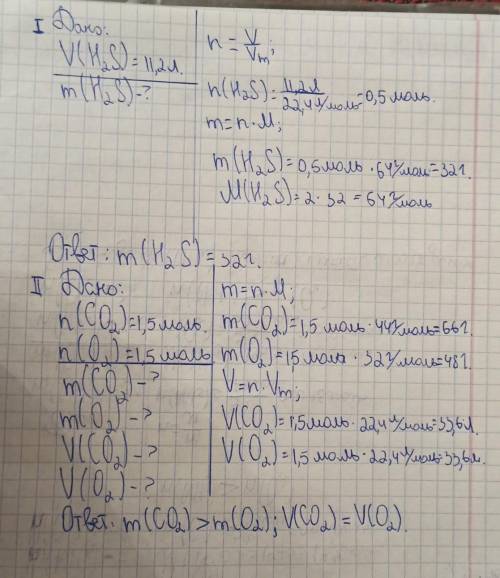 I Дано:
V(H₂S)=11,2л.
m(H₂S)-?
n = V/Vₘ;
n(H₂S)= 11,2л/22,4л/моль =0,5 моль.
m=n·M;
m(H₂S)=0,5моль · 64г/моль=32г.
M(H₂S)=2·32=64г/моль
Ответ: m(H₂S)=32г.
II Дано:
n(CO₂)=1,5моль.
n(O₂)=1,5 моль
m(CO₂)-?
m(O₂)-?
V(CO₂)-?
V(O₂)-?
m=n·M;
m(CO₂)=1,5 моль · 44г/моль=66г.
m(O₂)=1,5 моль · 32г/моль=48г.
V=n·Vₘ;
V(CO₂)=1,5моль · 22,4л/моль=33,6л.
V(O₂)=1,5моль · 22,4л/моль=33,6л.
Ответ: m(CO₂)>m(O₂); V(CO₂)=V(O₂).